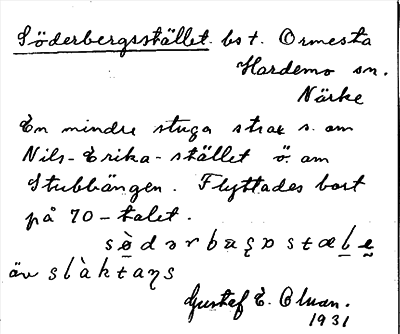 Söderbergsstället. bst. Ormesta
Hardemo sn.
Närke
En mindre stuga strax s. om
Nils-Erika-stället ö. om
Stubbängen. Flyttades bort
på 70-talet.
äv
Gustaf E. Olsson.
1931